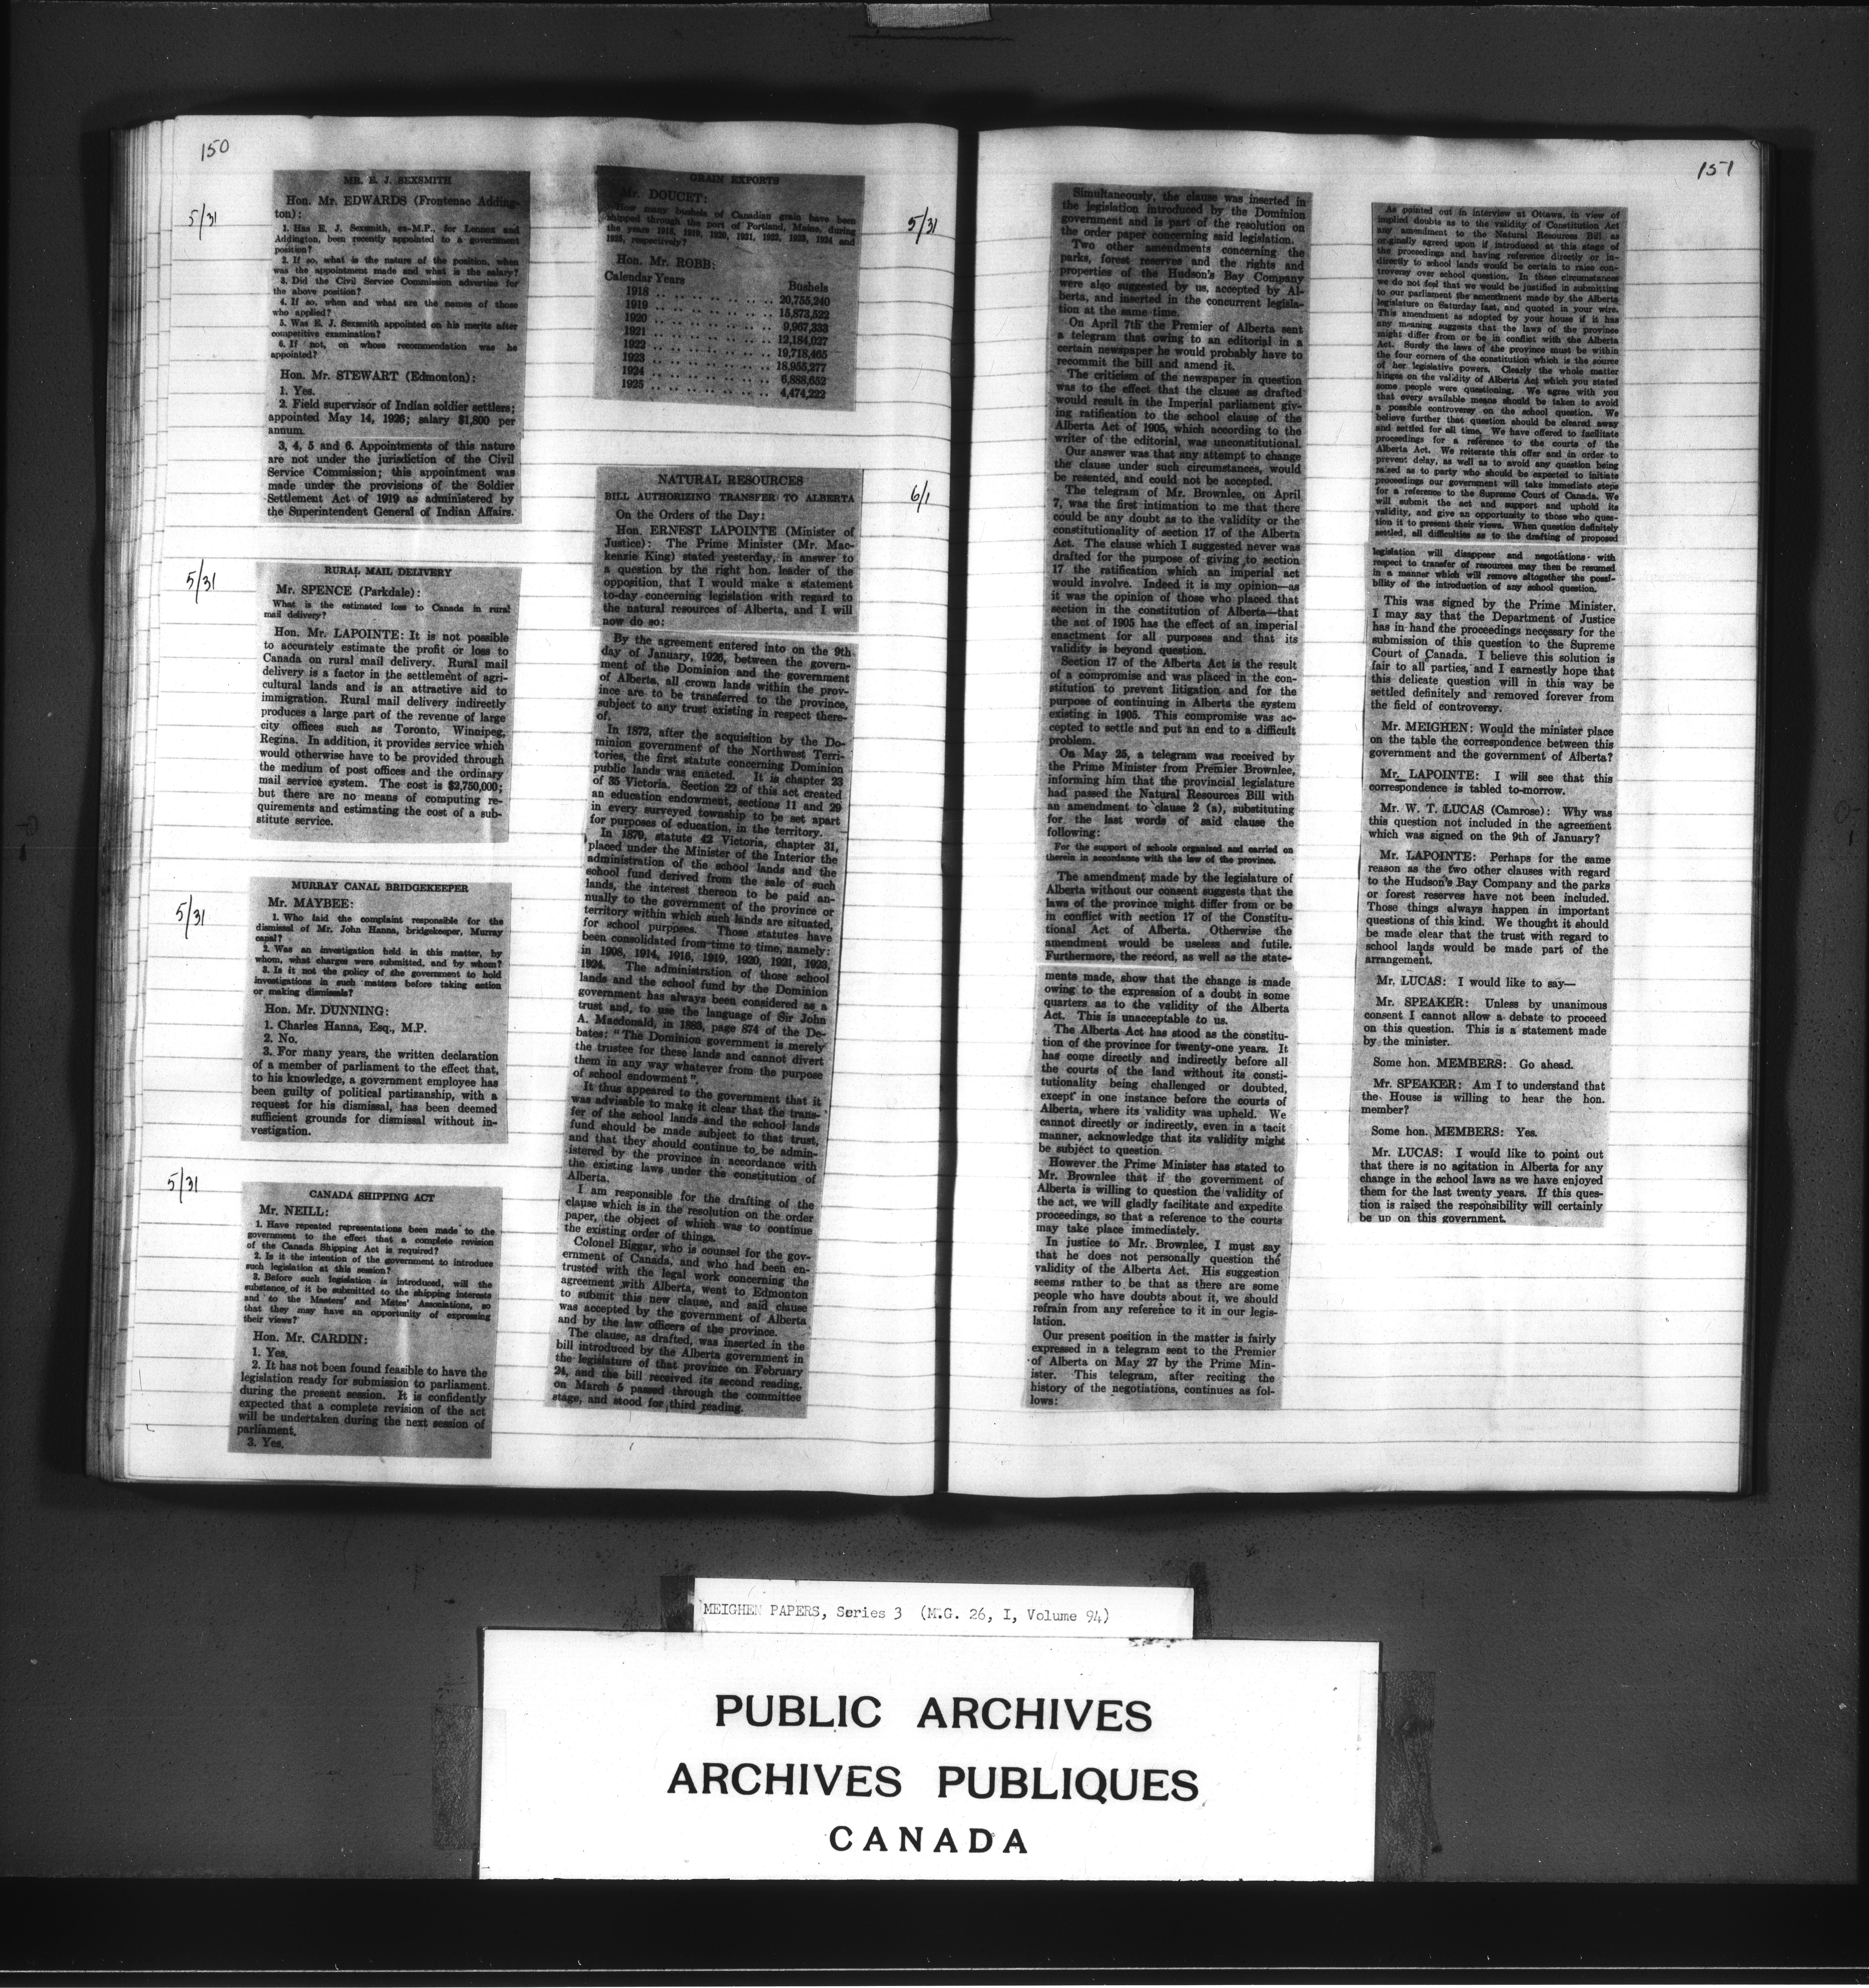 150
5/31
MR. E. J. SEXSMITH
Hon. Mr. EDWARDS (Frontenac Adding-
ton):
1. Has E. J. Sexsmith, ex-M.P., for Lennox and
Addington, been recently appointed to a government
position?
2. If so, what is the nature of the position, when
was the appointment made and what is the salary?
3. Did the Civil Service Commission advertise for
the above position?
4. If so, when and what are the names of those
who applied?
5. Was E. J. Sexsmith appointed on his merits after
competitive examination?
6. If not, on whose recommendation was he
appointed?
Hon. Mr. STEWART (Edmonton):
1. Yes.
2. Field supervisor of Indian soldier settlers;
appointed May 14, 1926; salary $1,800 per
annum.
3, 4, 5 and 6. Appointments of this nature
are not under the jurisdiction of the Civil
Service Commission; this appointment was
made under the provisions of the Soldier
Settlement Act of 1919 as administered by
the Superintendent General of Indian Affairs.
5/31
RURAL MAIL DELIVERY
Mr. SPENCE (Parkdale):
What is the estimated loss to Canada in rural
mail delivery?
Hon. Mr. LAPOINTE: It is not possible
to accurately estimate the profit or loss to
Canada on rural mail delivery. Rural mail
delivery is a factor in the settlement of agri-
cultural lands and is an attractive aid to
immigration. Rural mail delivery indirectly
produces a large part of the revenue of large
city offices such as Toronto, Winnipeg,
Regina. In addition, it provides service which
would otherwise have to be provided through
the medium of post offices and the ordinary
mail service system. The cost is $2,750,000;
but there are no means of computing re-
quirements and estimating the cost of a sub-
stitute service.
5/31
MURRAY CANAL BRIDGEKEEPER
Mr. MAYBEE:
1. Who laid the complaint responsible for the
dismissal of Mr. John Hanna, bridgekeeper, Murray
canal?
2. Was an investigation held in this matter, by
whom, what charges were submitted, and by whom?
3. Is it not the policy of the government to hold
investigations in such matters before taking action
or making dismissals?
Hon. Mr. DUNNING:
1. Charles Hanna, Esq., M.P.
2. No.
3. For many years, the written declaration
of a member of parliament to the effect that,
to his knowledge, a government employee has
been guilty of political partizanship, with a
request for his dismissal, has been deemed
sufficient grounds for dismissal without in-
vestigation.
5/31
CANADA SHIPPING ACT
Mr. NEILL:
1. Have repeated representations been made to the
government to the effect that a complete revision
of the Canada Shipping Act is required?
2. Is it the intention of the government to introduce
such legislation at this session?
3. Before such legislation is introduced, will the
substance of it be submitted to the shipping interests
and to the Masters' and Mates' Associations, so
that they may have an opportunity of expressing
their views?
Hon. Mr. CARDIN:
1. Yes.
2. It has not been found feasible to have the
legislation ready for submission to parliament
during the present session. It is confidently
expected that a complete revision of the act
will be undertaken during the next session of
parliament.
3. Yes.
5/31
GRAIN EXPORTS
Mr. DOUCET:
How many bushels of Canadian grain have been
shipped through the port of Portland, Maine, during
the years 1918, 1919, 1920, 1921, 1922, 1923, 1924 and
1925, respectively?
Hon. Mr. ROBB:
Calendar Years Bushels
1918 .. .. .. .. .. .. .. .. 20,755,240
1919 .. .. .. .. .. .. .. .. 15,873,522
1920 .. .. .. .. .. .. .. .. 9,967,333
1921 .. .. .. .. .. .. .. .. 12,184,027
1922 .. .. .. .. .. .. .. .. 19,718,465
1923 .. .. .. .. .. .. .. .. 18,955,277
1924 .. .. .. .. .. .. .. .. 6,888,652
1925 .. .. .. .. .. .. .. .. 4,474,222
6/1
NATURAL RESOURCES
BILL AUTHORIZING TRANSFER TO ALBERTA
On the Orders of the Day:
Hon. ERNEST LAPOINTE (Minister of
Justice): The Prime Minister (Mr. Mac-
kenzie King) stated yesterday, in answer to
a question by the right hon. leader of the
opposition, that I would make a statement
to-day concerning legislation with regard to
the natural resources of Alberta, and I will
now do so:
By the agreement entered into on the 9th
day of January, 1926, between the govern-
ment of the Dominion and the government
of Alberta, all crown lands within the prov-
ince are to be transferred to the province,
subject to any trust existing in respect there-
of.
In 1872, after the acquisition by the Do-
minion government of the Northwest Terri-
tories, the first statute concerning Dominion
public lands was enacted. It is chapter 23
of 35 Victoria. Section 22 of this act created
an education endowment, sections 11 and 29
in every surveyed township to be set apart
for purposes of education, in the territory.
In 1879, statute 42 Victoria, chapter 31,
placed under the Minister of the Interior the
administration of the school lands and the
school fund derived from the sale of such
lands, the interest thereon to be paid an-
nually to the government of the province or
territory within which such lands are situated,
for school purposes. Those statutes have
been consolidated from time to time, namely:
in 1908, 1914, 1916, 1919, 1920, 1921, 1923,
1924. The administration of those school
lands and the school fund by the Dominion
government has always been considered as a
trust and, to use the language of Sir John
A. Macdonald, in 1883, page 874 of the De-
bates: "The Dominion government is merely
the trustee for these lands and cannot divert
them in any way whatever from the purpose
of school endowment".
It thus appeared to the government that it
was advisable to make it clear that the trans-
fer of the school lands and the school lands
fund should be made subject to that trust,
and that they should continue to be admin-
istered by the province in accordance with
the existing laws under the constitution of
Alberta.
I am responsible for the drafting of the
clause which is in the resolution on the order
paper, the object of which was to continue
the existing order of things.
Colonel Biggar, who is counsel for the gov-
ernment of Canada, and who had been en-
trusted with the legal work concerning the
agreement with Alberta, went to Edmonton
to submit this new clause, and said clause
was accepted by the government of Alberta
and by the law officers of the province.
The clause, as drafted, was inserted in the
bill introduced by the Alberta government in
the legislature of that province on February
24, and the bill received its second reading,
on March 5 passed through the committee
stage, and stood for third reading.
151
Simultaneously, the clause was inserted in
the legislation introduced by the Dominion
government and is part of the resolution on
the order paper concerning said legislation.
Two other amendments concerning the
parks, forest reserves and the rights and
properties of the Hudson's Bay Company
were also suggested by us, accepted by Al-
berta, and inserted in the concurrent legisla-
tion at the same time.
On April 7th the Premier of Alberta sent
a telegram that owing to an editorial in a
certain newspaper he would probably have to
recommit the bill and amend it.
The criticism of the newspaper in question
was to the effect that the clause as drafted
would result in the Imperial parliament giv-
ing ratification to the school clause of the
Alberta Act of 1905, which according to the
writer of the editorial, was unconstitutional.
Our answer was that any attempt to change
the clause under such circumstances, would
be resented, and could not be accepted.
The telegram of Mr. Brownlee, on April
7, was the first intimation to me that there
could be any doubt as to the validity or the
constitutionality of section 17 of the Alberta
Act. The clause which I suggested never was
drafted for the purpose of giving to section
17 the ratification which an imperial act
would involve. Indeed it is my opinion—as
it was the opinion of those who placed that
section in the constitution of Alberta—that
the act of 1905 has the effect of an imperial
enactment for all purposes and that its
validity is beyond question.
Section 17 of the Alberta Act is the result
of a compromise and was placed in the con-
stitution to prevent litigation and for the
purpose of continuing in Alberta the system
existing in 1905. This compromise was ac-
cepted to settle and put an end to a difficult
problem.
On May 25, a telegram was received by
the Prime Minister from Premier Brownlee,
informing him that the provincial legislature
had passed the Natural Resources Bill with
an amendment to clause 2 (a), substituting
for the last words of said clause the
following:
For the support of schools organized and carried on
therein in accordance with the law of the province.
The amendment made by the legislature of
Alberta without our consent suggests that the
laws of the province might differ from or be
in conflict with section 17 of the Constitu-
tional Act of Alberta. Otherwise the
amendment would be useless and futile.
Furthermore, the record, as well as the state-
ments made, show that the change is made
owing to the expression of a doubt in some
quarters as to the validity of the Alberta
Act. This is unacceptable to us.
The Alberta Act has stood as the constitu-
tion of the province for twenty-one years. It
has come directly and indirectly before all
the courts of the land without its consti-
tutionality being challenged or doubted,
except in one instance before the courts of
Alberta, where its validity was upheld. We
cannot directly or indirectly, even in a tacit
manner, acknowledge that its validity might
be subject to question.
However the Prime Minister has stated to
Mr. Brownlee that if the government of
Alberta is willing to question the validity of
the act, we will gladly facilitate and expedite
proceedings, so that a reference to the courts
may take place immediately.
In justice to Mr. Brownlee, I must say
that he does not personally question the
validity of the Alberta Act. His suggestion
seems rather to be that as there are some
people who have doubts about it, we should
refrain from any reference to it in our legis-
lation.
Our present position in the matter is fairly
expressed in a telegram sent to the Premier
of Alberta on May 27 by the Prime Min-
ister. This telegram, after reciting the
history of the negotiations, continues as fol-
lows:
As pointed out in interview at Ottawa, in view of
implied doubts as to the validity of Constitution Act
any amendment to the Natural Resources Bill as
originally agreed upon if introduced at this stage of
the proceedings and having reference directly or in-
directly to school lands would be certain to raise con-
troversy over school question. In these circumstances
we do not feel that we would be justified in submitting
to our parliament the amendment made by the Alberta
legislature on Saturday last, and quoted in your wire.
This amendment as adopted by your house if it has
any meaning suggests that the laws of the province
might differ from or be in conflict with the Alberta
Act. Surely the laws of the province must be within
the four corners of the constitution which is the source
of her legislative powers. Clearly the whole matter
hinges on the validity of Alberta Act which you stated
some people were questioning. We agree with you
that every available means should be taken to avoid
a possible controversy on the school question. We
believe further that question should be cleared away
and settled for all time. We have offered to facilitate
proceedings for a reference to the courts of the
Alberta Act. We reiterate this offer and in order to
prevent delay, as well as to avoid any question being
raised as to party who should be expected to initiate
proceedings our government will take immediate steps
for a reference to the Supreme Court of Canada. We
will submit the act and support and uphold its
validity, and give an opportunity to those who ques-
tion it to present their views. When question definitely
settled, all difficulties as to the drafting of proposed
legislation will disappear and negotiations with
respect to transfer of resources may then be resumed
in a manner which will remove altogether the possi-
bility of the introduction of any school question.
This was signed by the Prime Minister.
I may say that the Department of Justice
has in hand the proceedings necessary for the
submission of this question to the Supreme
Court of Canada. I believe this solution is
fair to all parties, and I earnestly hope that
this delicate question will in this way be
settled definitely and removed forever from
the field of controversy.
Mr. MEIGHEN: Would the minister place
on the table the correspondence between this
government and the government of Alberta?
Mr. LAPOINTE: I will see that this
correspondence is tabled to-morrow.
Mr. W. T. LUCAS (Camrose): Why was
this question not included in the agreement
which was signed on the 9th of January?
Mr. LAPOINTE: Perhaps for the same
reason as the two other clauses with regard
to the Hudson's Bay Company and the parks
or forest reserves have not been included.
Those things always happen in important
questions of this kind. We thought it should
be made clear that the trust with regard to
school lands would be made part of the
arrangement.
Mr. LUCAS: I would like to say—
Mr. SPEAKER: Unless by unanimous
consent I cannot allow a debate to proceed
on this question. This is a statement made
by the minister.
Some hon. MEMBERS: Go ahead.
Mr. SPEAKER: Am I to understand that
the House is willing to hear the hon.
member?
Some hon. MEMBERS: Yes.
Mr. LUCAS: I would like to point out
that there is no agitation in Alberta for any
change in the school laws as we have enjoyed
them for the last twenty years. If this ques-
tion is raised the responsibility will certainly
be up on this government.
MEIGHEN PAPERS, Series 3 (M.G. 26, I, Volume 94)
PUBLIC ARCHIVES
ARCHIVES PUBLIQUES
CANADA